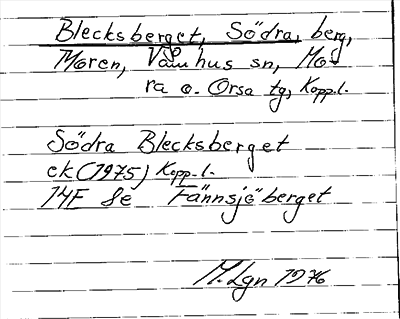 Blecksberget, Södra, berg,
Moren, Våmhus sn, Mo-
ra o. Orsa tg, Kopp.l.
Södra Blecksberget
ek (1975) Kopp.l.
14F 8e Fännsjöberget
M.Lgn 1976